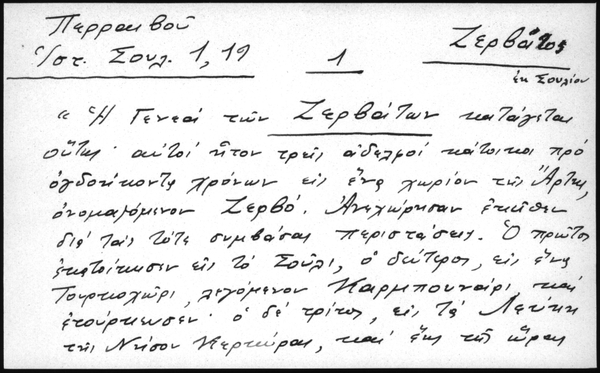 Περραιβοῦ
Ἱστ. Σουλ. 1, 19
1
Ζερβᾶτος
ἐκ Σουλίου
« Ἡ Γενεά τῶν Ζερβάτων κατάγεται
οὕτως· αὐτοί ἦτον τρεῖς ἀδελφοί κάτοικοι πρό
ὀγδοήκοντα χρόνων εἰς ἕνα χωρίον τῆς Ἄρτης,
ὀνομαζόμενον Ζερβό. Ἀνεχώρησαν ἐκεῖθεν
διά τάς τότε συμβάσας περιστάσεις. Ὁ πρῶτος
ἐκατοίκησεν εἰς τό Σοῦλι, ὁ δεύτερος, εἰς ἕνα
Τουρκοχῶρι, λεγόμενον Καρμπουνάρι, καί
ἐτούρκευσεν· ὁ δέ τρίτος, εἰς τά Λεύκη
τῆς Νήσου Κερκύρας, καί ἕως τῆς ὥρας